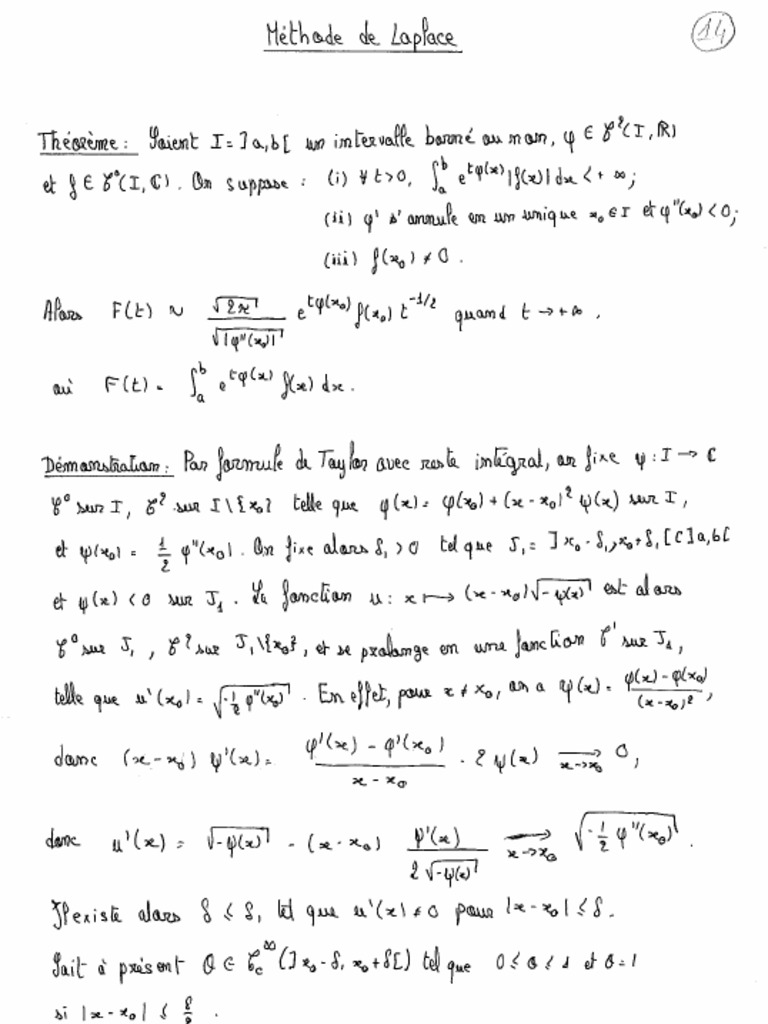 Méthode de Laplace
14
Théorème : Soient I = ]a,b[ un intervalle borné ou non, φ ∈ 𝒞²(I, ℝ)
et f ∈ 𝒞⁰(I, ℂ). On suppose : (i) ∀ t>0, ∫_a^b e^{tφ(x)} |f(x)| dx < +∞ ;
(ii) φ' s'annule en un unique x₀ ∈ I et φ''(x₀) < 0 ;
(iii) f(x₀) ≠ 0.
Alors F(t) ~ √(2π) / √|φ''(x₀)| e^{tφ(x₀)} f(x₀) t^{-1/2} quand t → +∞,
où F(t) = ∫_a^b e^{tφ(x)} f(x) dx.
Démonstration : Par formule de Taylor avec reste intégral, on fixe ψ : I → ℂ
𝒞⁰ sur I, 𝒞² sur I\{x₀} telle que φ(x) = φ(x₀) + (x-x₀)² ψ(x) sur I,
et ψ(x₀) = 1/2 φ''(x₀). On fixe alors δ₁ > 0 tel que J₁ = ]x₀-δ₁, x₀+δ₁[ ⊂ ]a,b[
et ψ(x) < 0 sur J₁. La fonction u : x ↦ (x-x₀)√(-ψ(x)) est alors
𝒞⁰ sur J₁, 𝒞² sur J₁\{x₀}, et se prolonge en une fonction 𝒞¹ sur J₁,
telle que u'(x₀) = √(-1/2 φ''(x₀)). En effet, pour x ≠ x₀, on a ψ(x) = (φ(x) - φ(x₀))/(x-x₀)²,
donc (x-x₀) ψ'(x) = (φ'(x) - φ'(x₀))/(x-x₀) - 2ψ(x) → 0 (x→x₀),
donc u'(x) = √(-ψ(x)) - (x-x₀) ψ'(x)/(2√(-ψ(x))) → √(-1/2 φ''(x₀)) (x→x₀).
Il existe alors δ ≤ δ₁ tel que u'(x) ≠ 0 pour |x-x₀| ≤ δ.
Soit à présent θ ∈ 𝒞_c^∞(]x₀-δ, x₀+δ[) tel que 0 ≤ θ ≤ 1 et θ = 1
si |x-x₀| ≤ δ/2.